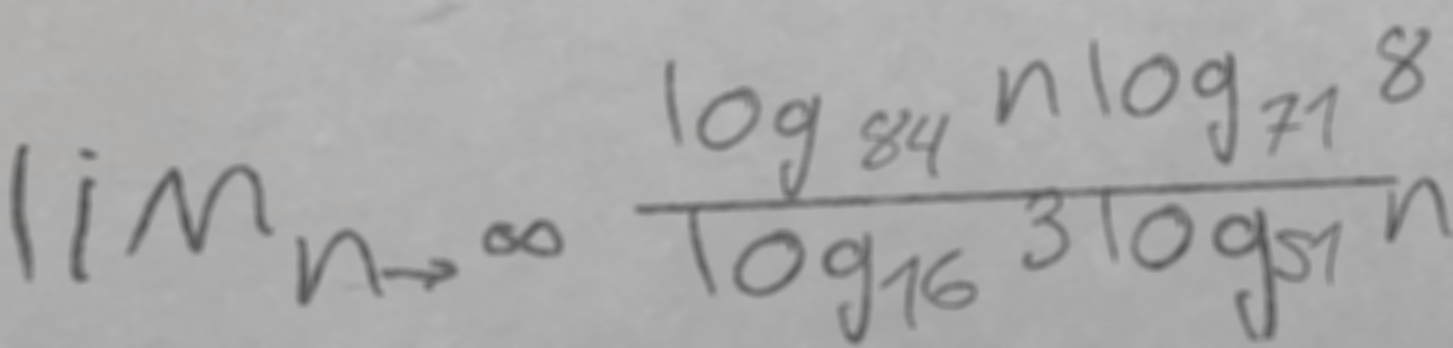 lim n→∞ \frac{log_{84} n log_{71} 8}{log_{16} 3 log_{51} n}